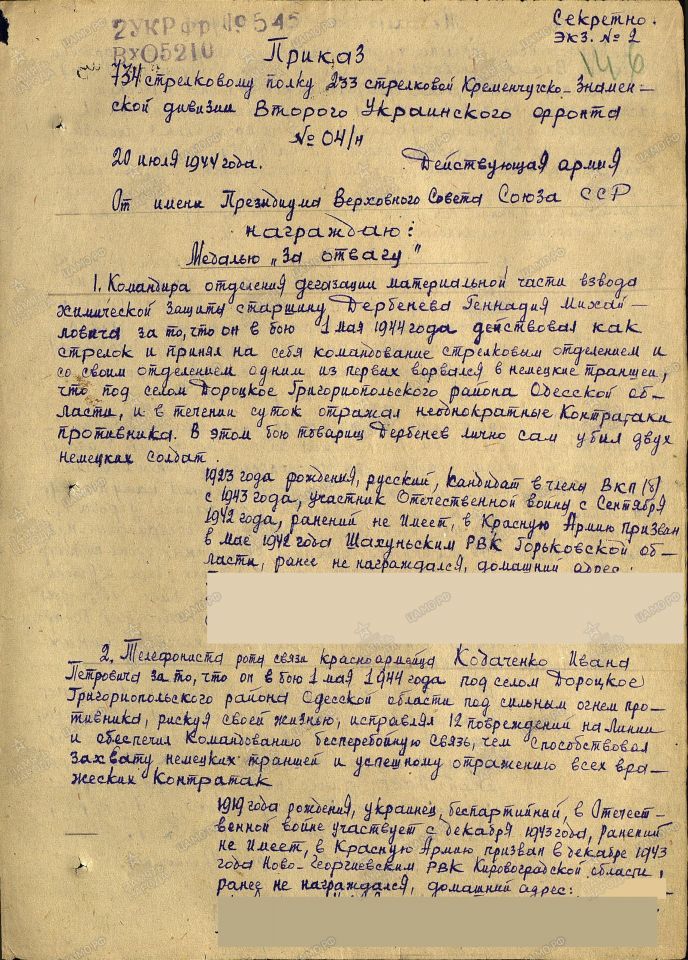 2УКР фр №545
Вх05210
Секретно.
Экз. № 2
146
Приказ
734 стрелковому полку 233 стрелковой Кременчугско-Знамен-
ской дивизии Второго Украинского фронта
№ 04/н
20 июля 1944 года. Действующая армия
От имени Президиума Верховного Совета Союза ССР
награждаю:
Медалью „За отвагу"
1. Командира отделения дегазации материальной части взвода
химической защиты старшину Дербенева Геннадия Михай-
ловича за то, что он в бою 1 мая 1944 года действовал как
стрелок и принял на себя командование стрелковым отделением и
со своим отделением одним из первых ворвался в немецкие траншеи,
что под селом Дороцкое Григориопольского района Одесской об-
ласти, и в течении суток отражал неоднократные контратаки
противника. В этом бою товарищ Дербенев лично сам убил двух
немецких солдат.
1923 года рождения, русский, кандидат в члены ВКП/б/
с 1943 года, участник Отечественной войны с Сентября
1942 года, ранений не имеет, в Красную Армию призван
в мае 1942 года Шахуньским РВК Горьковской об-
ласти, ранее не награждался, домашний адрес:
2. Телефониста роты связи красноармейца Кобаченко Ивана
Петровича за то, что он в бою 1 мая 1944 года под селом Дороцкое
Григориопольского района Одесской области под сильным огнем про-
тивника, рискуя своей жизнью, исправлял 12 повреждений на линии
и обеспечил командованию бесперебойную связь, чем способствовал
захвату немецких траншей и успешному отражению всех вра-
жеских контратак
1919 года рождения, украинец, беспартийный, в Отечест-
венной войне участвует с декабря 1943 года, ранений
не имеет, в Красную Армию призван в декабре 1943
года Ново-Георгиевским РВК Кировоградской области,
ранее не награждался, домашний адрес: